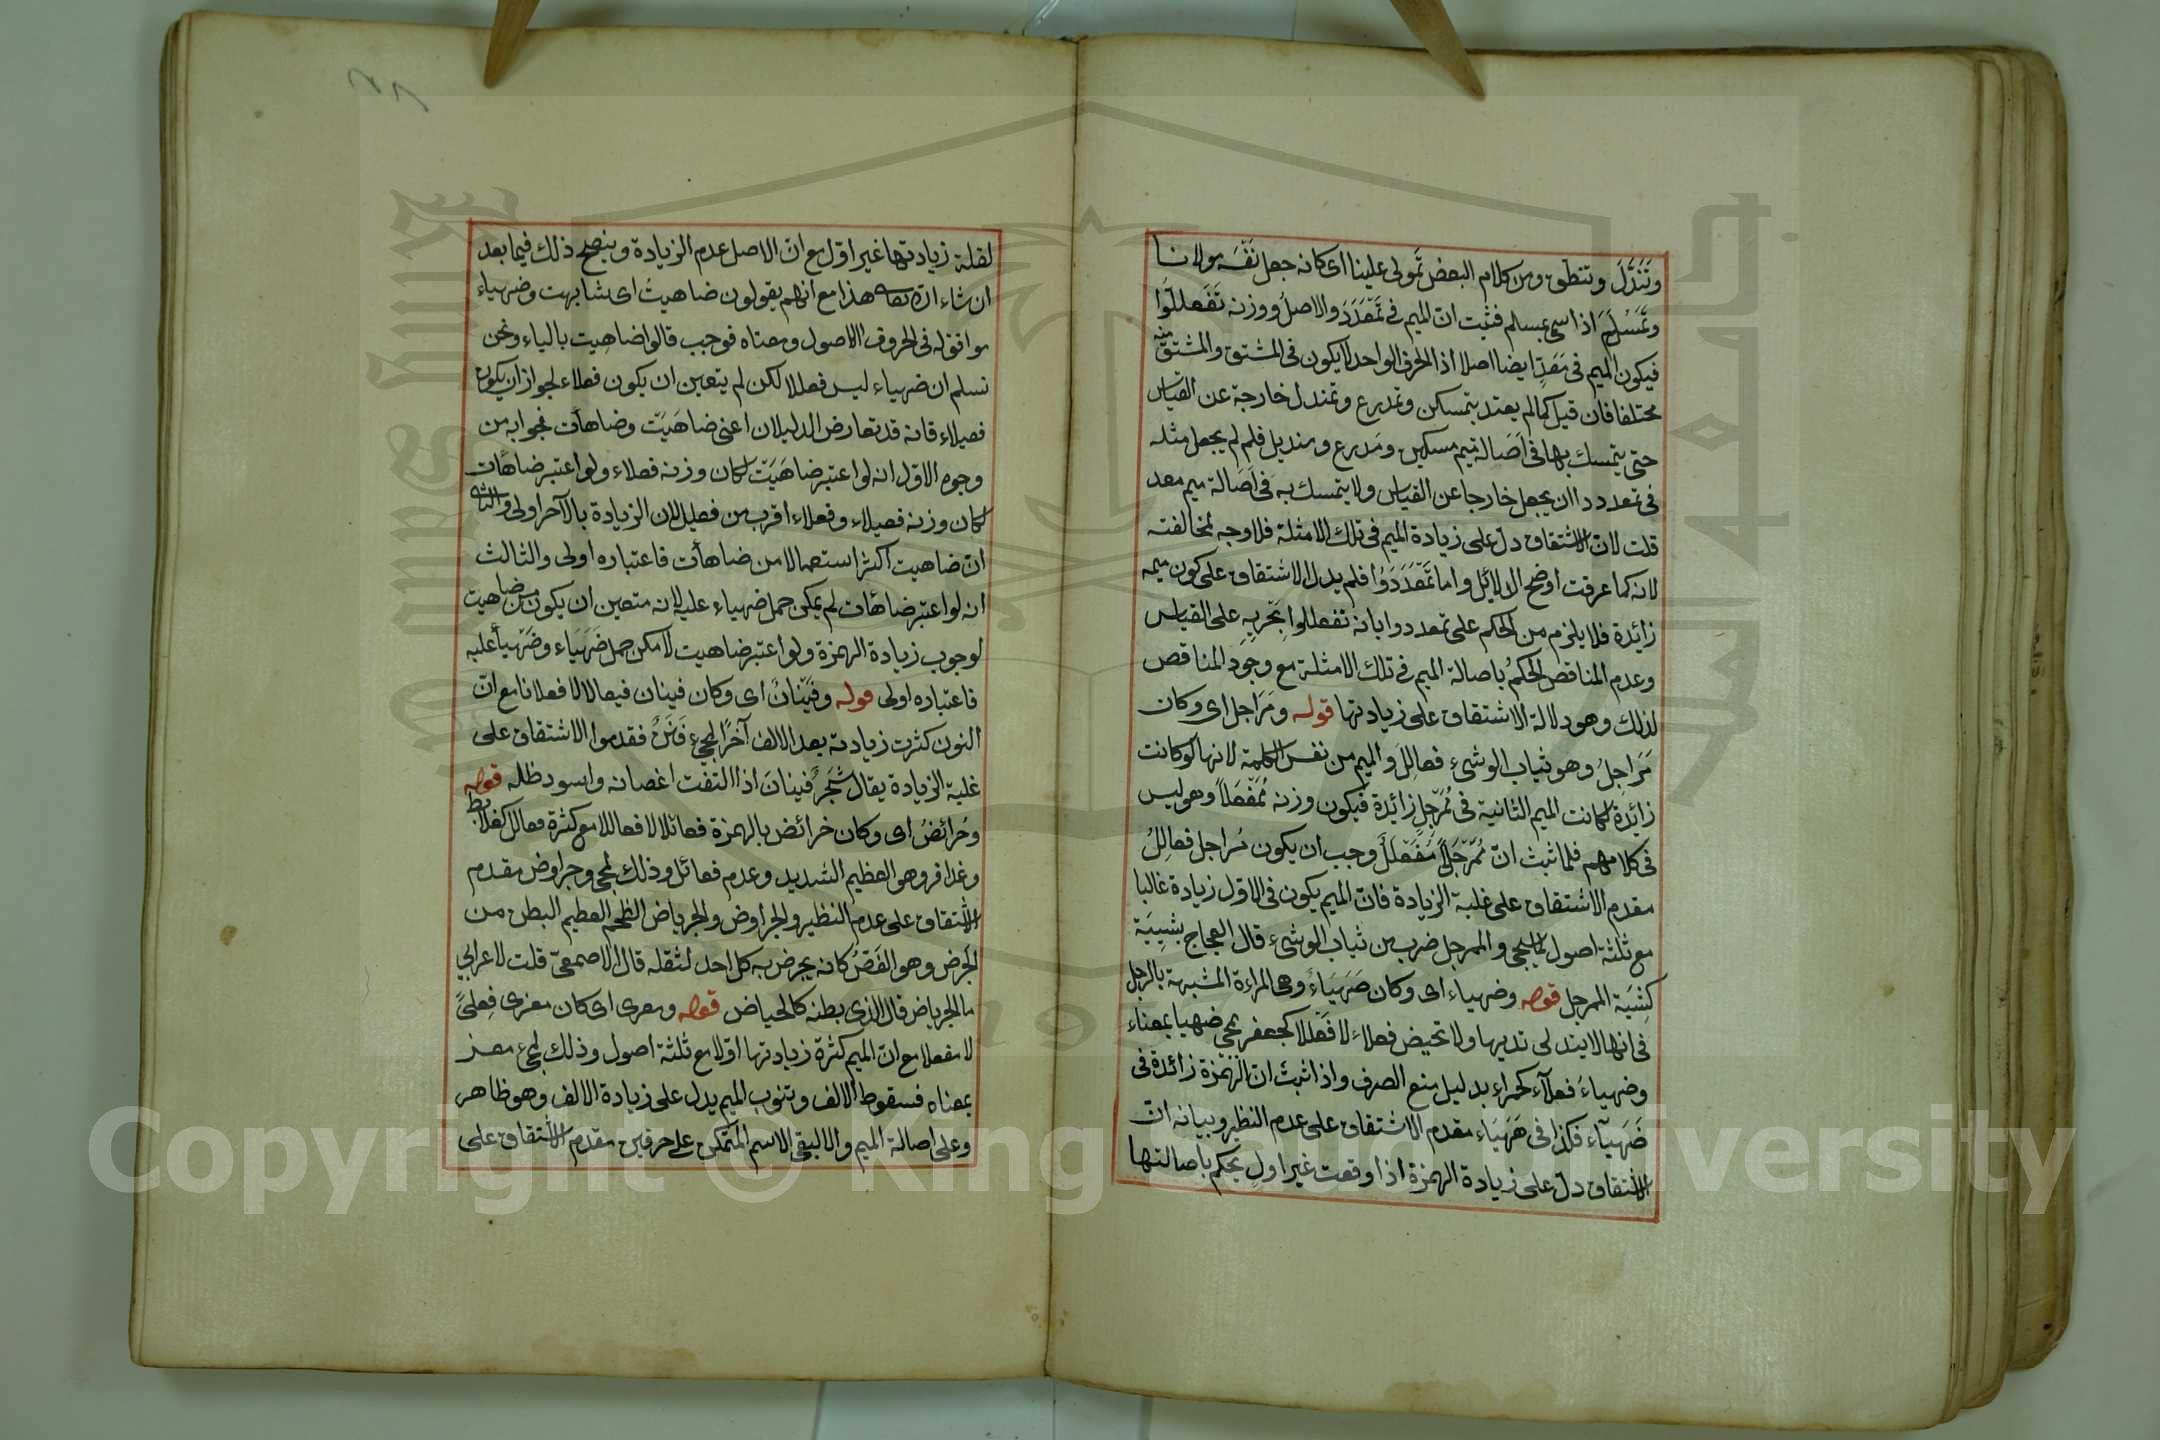 وتندل وتنطق ومن كلام البعض تمولى علينا اى كانه جعل نفسه مولانا
وتمسلم اذا سمى بمسلم فثبت ان الميم فى تمعدد والاصل ووزنه تفعللوا
فيكون الميم فى معد ايضا اصلا اذ الحرف الواحد لا يكون فى المشتق والمشتق منه
مختلفا فان قيل كما لم يعتد بتمسكن وتمدرع وتمندل خارجة عن القياس
حتى يتمسك بها فى اصالة ميم مسكين ومدرع ومنديل فلم لم يجعل مثله
فى تمعدد دا ان يجعل خارجا عن القياس ولا يتمسك به فى اصالة ميم معد
قلت لان الاشتقاق دل على زيادة الميم فى تلك الامثلة فلا وجه لمخالفته
لانه كما عرفت اوضح الدلايل واما تمعددوا فلم يدل الاشتقاق على كون ميمه
زائدة فلا يلزم من الحكم على تمعددوا بانه تفعللوا بجريه على القياس
وعدم المناقض الحكم باصالة الميم فى تلك الامثلة مع وجود المناقض
لذلك وهو دلالة الاشتقاق على زيادتها قوله ومراجل اى وكان
مراجل وهو ثياب الوشىء فعالل والميم من نفس الكلمة لانها لو كانت
زائدة لكانت الميم الثانية فى ممرجل زائدة فيكون وزنه ممفعلا وهو ليس
فى كلامهم فلما ثبت ان ممرجلا مفعلل وجب ان يكون مراجل فعالل
مقدم الاشتقاق على غلبة الزيادة فان الميم يكون فى الاول زيادة غالبا
مع ثلثة اصول لما يجى والممرجل ضرب من ثياب الوشىء قال العجاج بشية
كشية الممرجل قوله وضهياء اى وكان ضهياء وهى المراءة المشبهة بالرجل
فى انها لا يتدلى ثديها ولا تحيض فعلاء لا فعللا كجعفر بمجى ضهيا بمعناه
وضهياء فعلاء كحمراء بدليل منع الصرف واذا ثبت ان الهمزة زائدة فى
ضهياء فكذا فى ضهياء مقدم الاشتقاق على عدم النظير وبيانه ان
الاشتقاق دل على زيادة الهمزة اذا وقعت غير اول يحكم باصالتها
لقلة زيادتها غير اول مع ان الاصل عدم الزيادة ويتضح ذلك فيما بعد
ان شاء الله تعالى هذا مع انهم يقولون ضاهيت اى شابهت وضهياء
موافق له فى الحروف الاصول ومعناه فوجب قالوا ضاهيت بالياء ونحن
نسلم ان ضهياء ليس فعللا لكن لم يتعين ان يكون فعلاء لجواز ان يكون
فعيلاء فانه قد تعارض الدليلان اعنى ضاهيت وضاهأت فجوابه من
وجوه الاول انه لو اعتبر ضاهيت لكان وزنه فعلاء ولو اعتبر ضاهأت
لكان وزنه فعيلاء وفعلاء اقرب من فعيل لان الزيادة بالآخر اولى والثانى
ان ضاهيت اكثر استعمالا من ضاهأت فاعتباره اولى والثالث
انه لو اعتبر ضاهأت لم يمكن حمل ضهياء عليه لانه متعين ان يكون من ضاهيت
لوجوب زيادة الهمزة ولو اعتبر ضاهيت لامكن حمل ضهياء وضهيأ عليه
فاعتباره اولى قوله وفينان اى وكان فينان فيعالا لا فعلانا مع ان
النون كثرت زيادته بعد الالف آخرا لمجىء فنن فقدموا الاشتقاق على
غلبة الزيادة يقال شجر فينان اذا التفت اغصانه واسود ظله قوله
وجرائض اى وكان جرائض بالهمزة فعائلا لا فعاللا مع كثرة فعالل كعلابط
وعذافر وهو العظيم الشديد وعدم فعائل وذلك لمجى وجراوض مقدم
الاشتقاق على عدم النظير والجراوض والجرياض الضخم العظيم البطن من
الجرض وهو الغصص كانه يجرض به كل احد لثقله قال الاصمعى قلت لاعرابى
ما الجرياض قال الذى بطنه كالحياض قوله ومعزى اى كان معزى فعلى
لا مفعلا مع ان الميم كثرة زيادتها اولا مع ثلثة اصول وذلك لمجىء معز
بمعناه فسقوط الالف وثبوت الميم يدل على زيادة الالف وهو ظاهر
وعلى اصالة الميم والا لبقى الاسم المتمكن على حرفين مقدم الاشتقاق على
Copyright © King Saud University